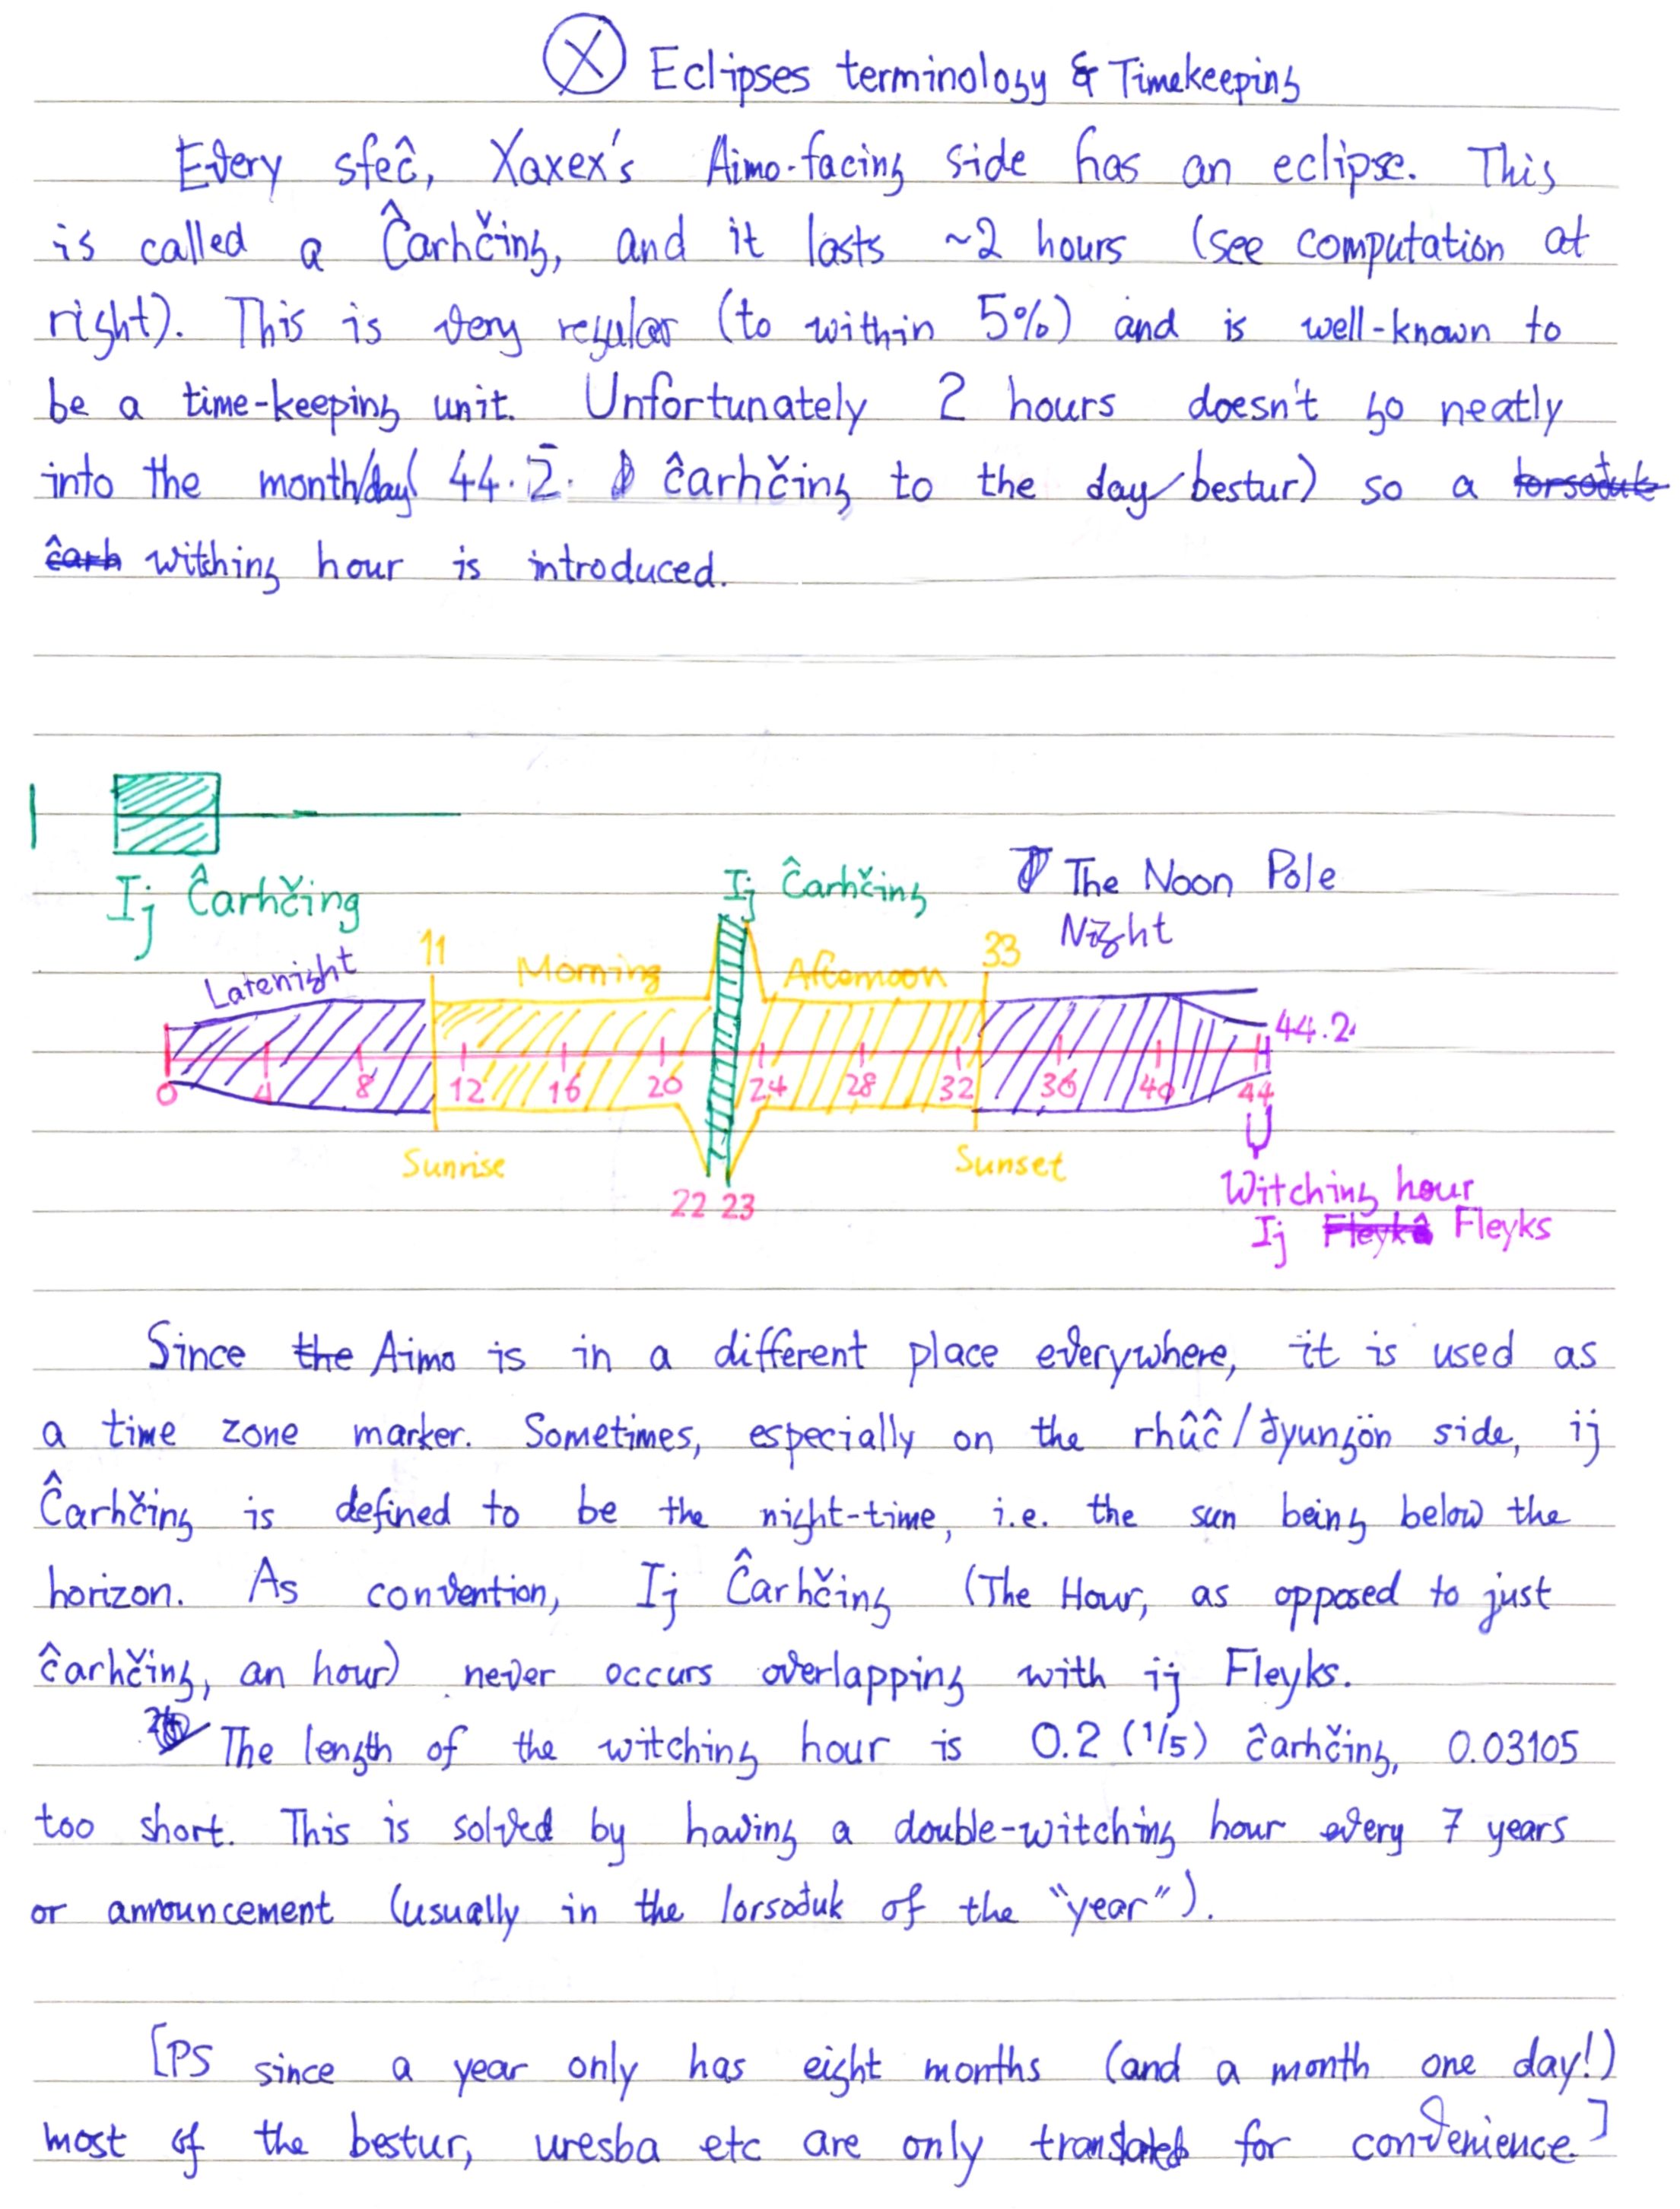 X Eclipses terminology & Timekeeping
Every sfeĉ, Xaxex's Aimo-facing side has an eclipse. This
is called a Ĉarhčing, and it lasts ~2 hours (see computation at
right). This is very regular (to within 5%) and is well-known to
be a time-keeping unit. Unfortunately 2 hours doesn't go neatly
into the month/day( 44.2. ĉarhčing to the day/bestur) so a lorsoðuk
ĉarh witching hour is introduced.
Ij Ĉarhčing
Ij Ĉarhčing
The Noon Pole
Night
Latenight
11
Morning
Afternoon
33
44.2
0 4 8 12 16 20 24 28 32 36 40 44
Sunrise
Sunset
22 23
Witching hour
Ij Fleyks
Since the Aimo is in a different place everywhere, it is used as
a time zone marker. Sometimes, especially on the rhûĉ/ðyungön side, ij
Ĉarhčing is defined to be the night-time, i.e. the sun being below the
horizon. As convention, Ij Ĉarhčing (The Hour, as opposed to just
ĉarhčing, an hour) never occurs overlapping with ij Fleyks.
The length of the witching hour is 0.2 (1/5) ĉarhčing, 0.03105
too short. This is solved by having a double-witching hour every 7 years
or announcement (usually in the lorsoðuk of the "year").
[PS since a year only has eight months (and a month one day!)
most of the bestur, uresba etc are only translated for convenience.]